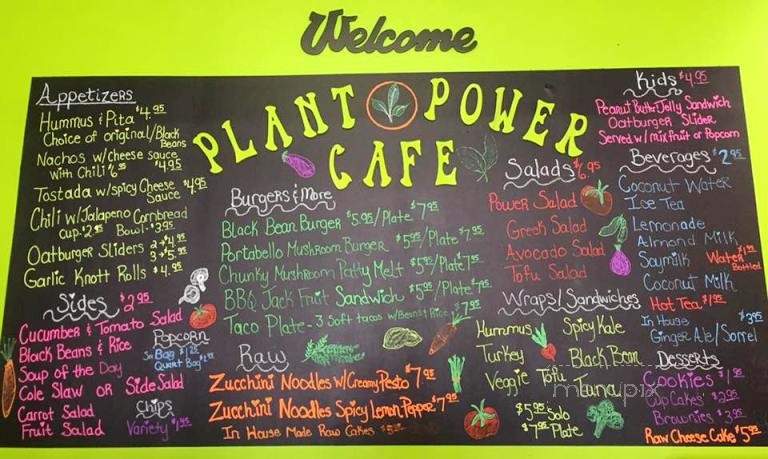 Welcome
PLANT POWER
CAFE
Appetizers
Hummus & Pita $4.95
Choice of original/Black
Beans
Nachos w/cheese sauce
with Chili $6.95 $4.95
Tostada w/spicy Cheese
Sauce $4.95
Chili w/Jalapeno Cornbread
cup-2.95 Bowl-$3.95
Oatburger Sliders 2→$4.95
3→$5.95
Garlic Knott Rolls $4.95
Sides $2.95
Cucumber & Tomato Salad
Black Beans & Rice
Soup of the Day
Cole Slaw or Side Salad
Carrot Salad
Fruit Salad
Popcorn
Sm Bag $1.25
Quart Bag
Chips
Variety $1.95
Burgers & More
Black Bean Burger $5.95/Plate $7.95
Portabello Mushroom Burger $5.95/Plate $7.95
Chunky Mushroom Patty Melt $5.95/Plate $7.95
BBQ Jack Fruit Sandwich $5.95/Plate $7.95
Taco Plate-3 Soft tacos w/Beans & Rice $7.95
Raw
Zucchini Noodles w/Creamy Pesto $7.95
Zucchini Noodles Spicy Lemon Pepper $7.95
In House Made Raw Cakes
Salads $6.95
Power Salad
Greek Salad
Avocado Salad
Tofu Salad
Wraps/Sandwiches
Hummus Spicy Kale
Turkey Black Bean
Veggie Tofu Tuna
$5.95 Solo
$7.95 Plate
Kids $4.95
Peanut Butter Jelly Sandwich
Oatburger Slider
Served w/mix fruit or Popcorn
Beverages $2.95
Coconut Water
Ice Tea
Lemonade
Almond Milk
Soymilk
Water
Bottled
Coconut Milk
Hot Tea $1.95
In House $3.95
Ginger Ale/Sorrel
Desserts
Cookies $1.95
Cup Cakes $2.95
Brownies $3.95
Raw Cheese Cake $5.95
menupix